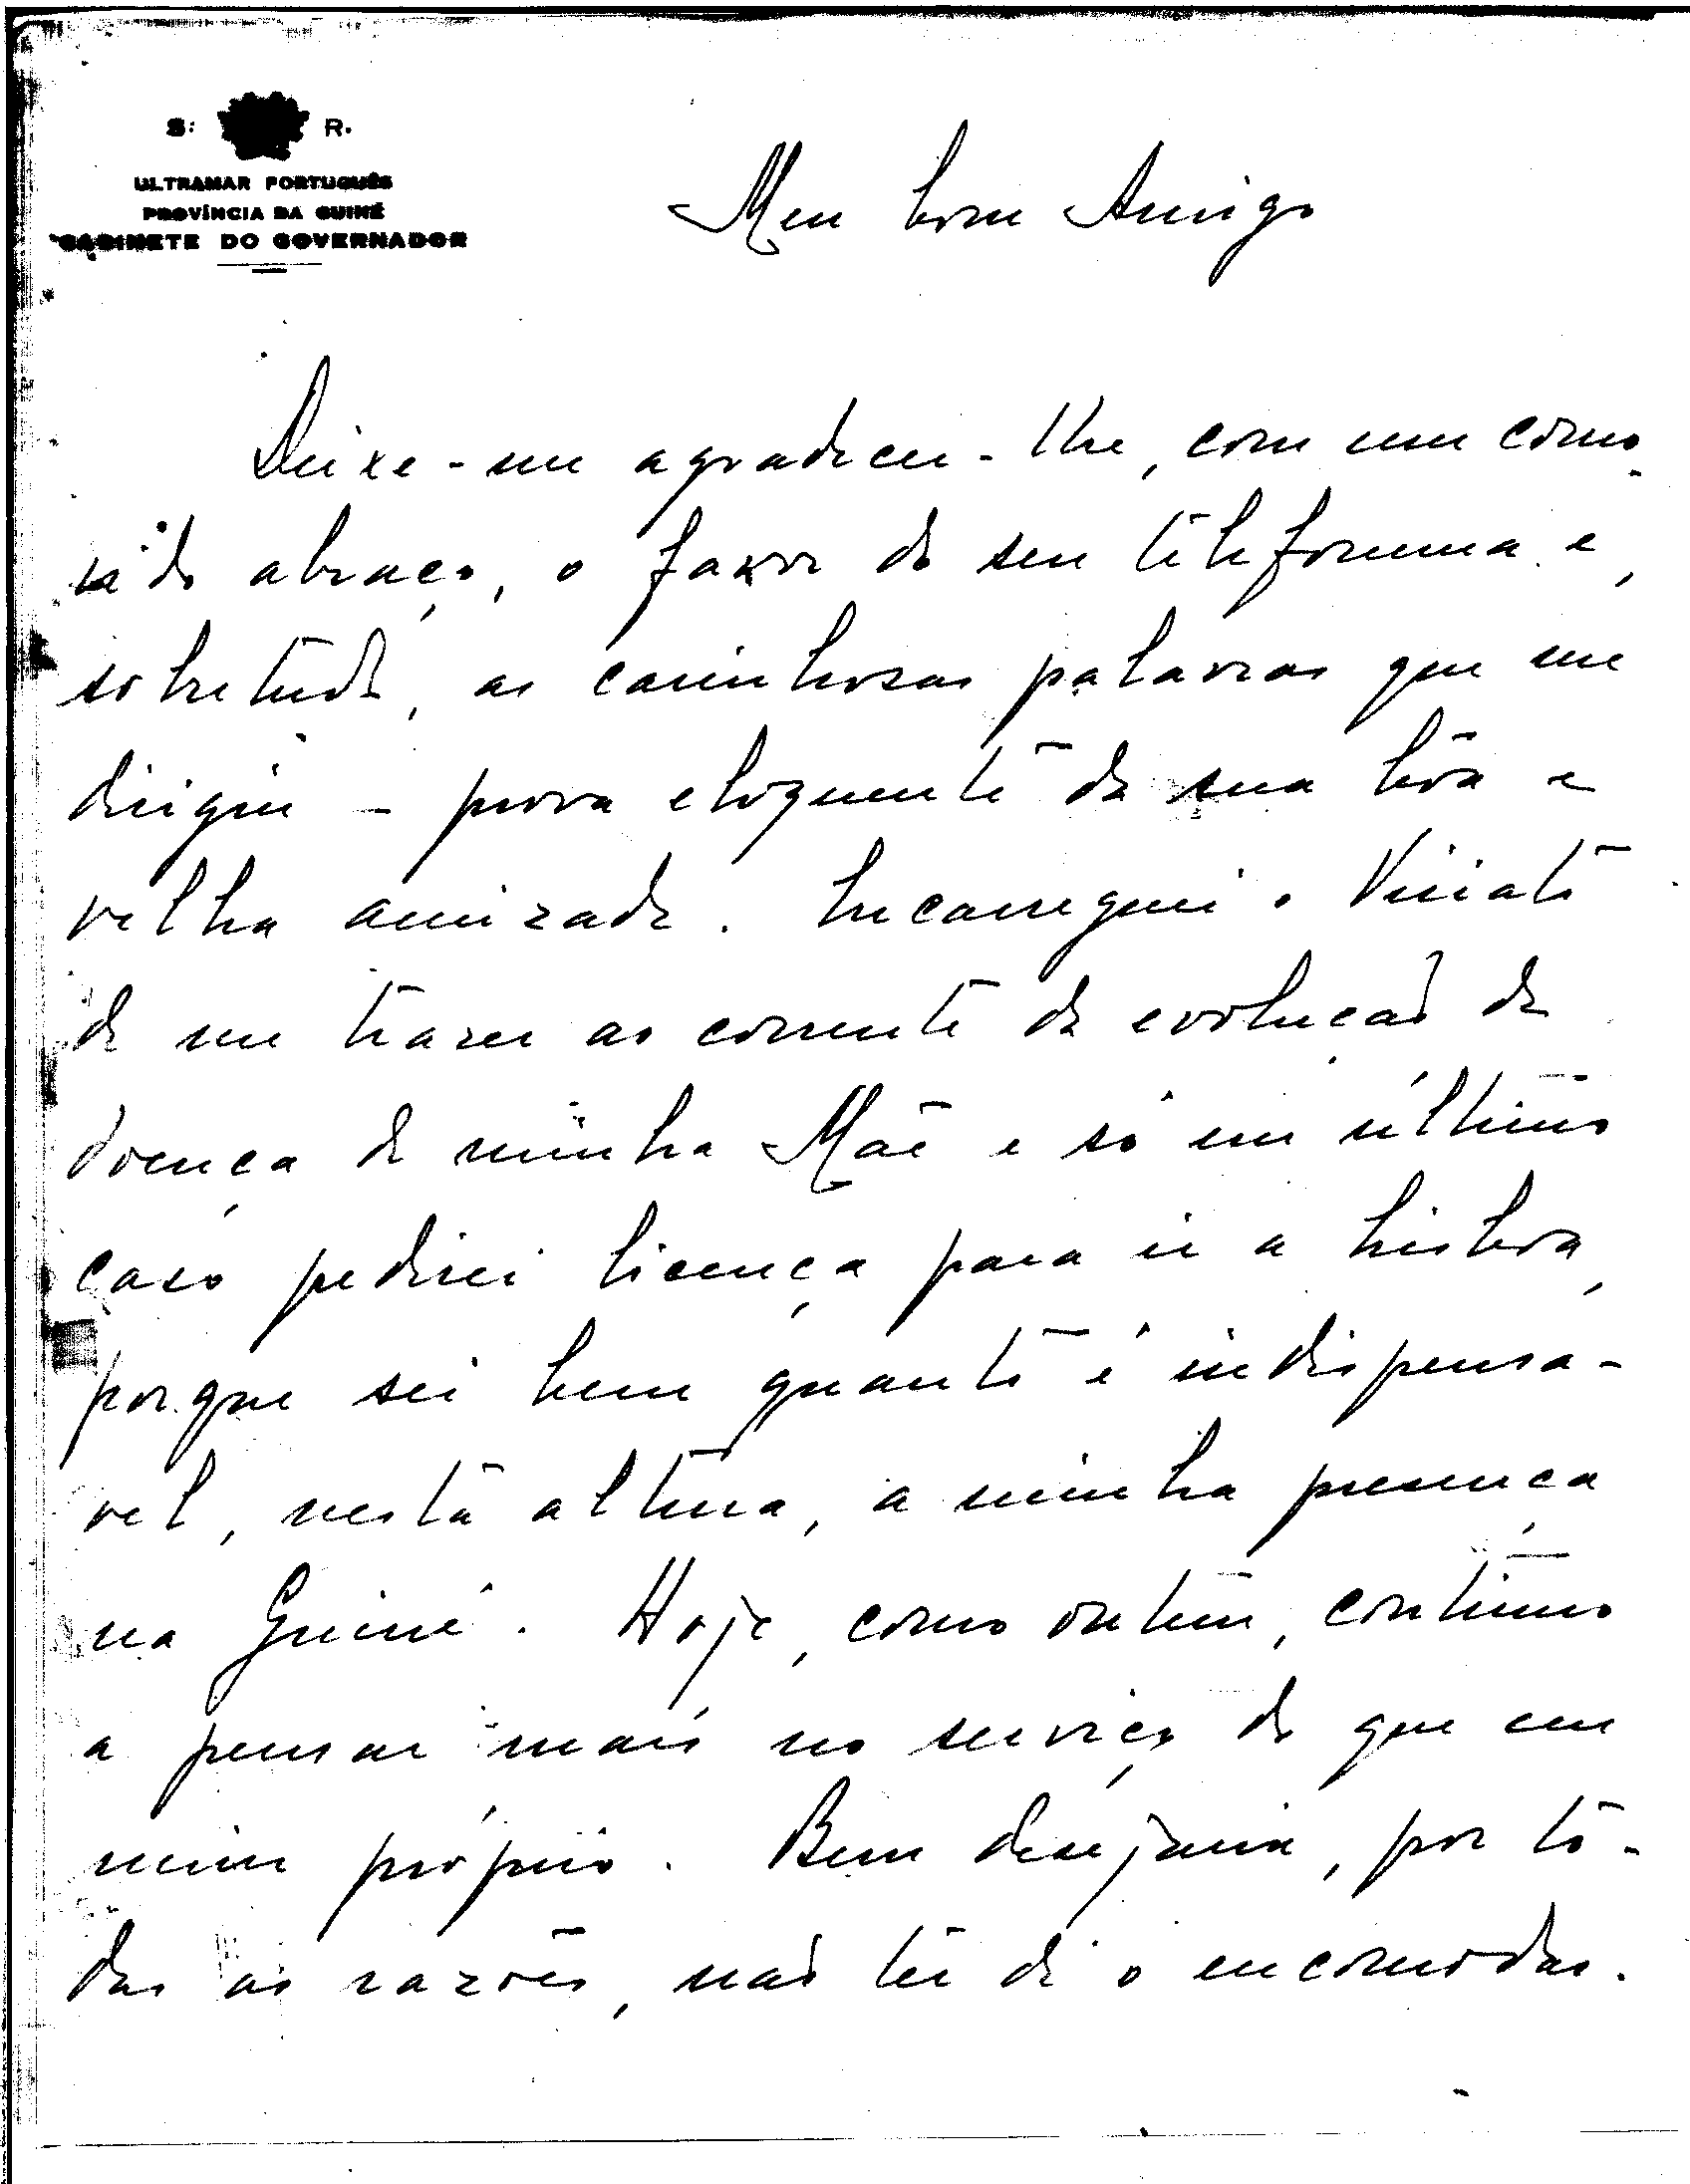 S. R.
ULTRAMAR PORTUGUÊS
PROVÍNCIA DA GUINÉ
GABINETE DO GOVERNADOR
Meu bom Amigo
Deixe-me agradecer-lhe, com um como-
vido abraço, o favor do seu telefonema e,
sobretudo, as carinhosas palavras que me
dirigiu - prova eloquente da sua bôa e
velha amizade. Encarreguei o Viriato
de me trazer ao corrente da evolução da
doença de minha Mãe e só em último
caso pedirei licença para ir a Lisboa,
porque sei bem quanto é indispensa-
vel, nesta altura, a minha presença
na Guiné. Hoje, como ontem, continuo
a pensar mais no serviço do que em
mim próprio. Bem desejaria, por tô-
das as razões, não ter de o encomodar.